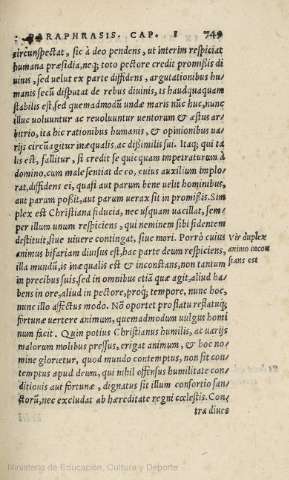 PARAPHRASIS. CAP. I 749
circunspectat, sic à deo pendens, ut interim respiciat
humana præsidia, neq; toto pectore credit promißis di
uinis, sed uelut ex parte diffidens, argutationibus hu-
manis secũ disputat de rebus diuinis, is haudquaquam
stabilis est, sed quemadmodũ unda maris nũc huc, nunc
illuc uoluuntur ac reuoluuntur uentorum & æstus ar-
bitrio, ita hic rationibus humanis, & opinionibus ua-
rijs circũagitur inæqualis, ac dißimilis sui. Itaq; qui ta
lis est, fallitur, si credit se quicquam impetraturum à
domino, cum male sentiat de eo, cuius auxilium implo-
rat, diffidens ei, quasi aut parum bene uelit hominibus,
aut parum poßit, aut parum uerax sit in promißis. Sim
plex est Christiana fiducia, nec usquam uacillat, sem-
per illum unum respiciens, qui neminem sibi fidentem
destituit, siue uiuere contingat, siue mori. Porrò cuius
animus bifariam diuisus est, hac parte deum respiciens,
illa mundũ, is inæqualis est & inconstans, non tantum
in precibus suis, sed in omnibus etiã quæ agit, aliud ha-
bens in ore, aliud in pectore, proq; tempore, nunc hoc,
nunc illo affectus modo. Nõ oportet pro flatu reflatuq;
fortunæ uertere animum, quemadmodum uulgus homi
num facit. Quin potius Christianus humilis, ac uarijs
malorum molibus pressus, erigat animum, & hoc no-
mine glorietur, quod mundo contemptus, non sit con-
temptus apud deum, qui nihil offensus humilitate con-
ditionis aut fortunæ, dignatus sit illum consortio san-
ctorũ, nec excludat ab hæreditate regni cœlestis. Con-
tra diues
Vir duplex
animo incon
stans est
Ministerio de Educación, Cultura y Deporte